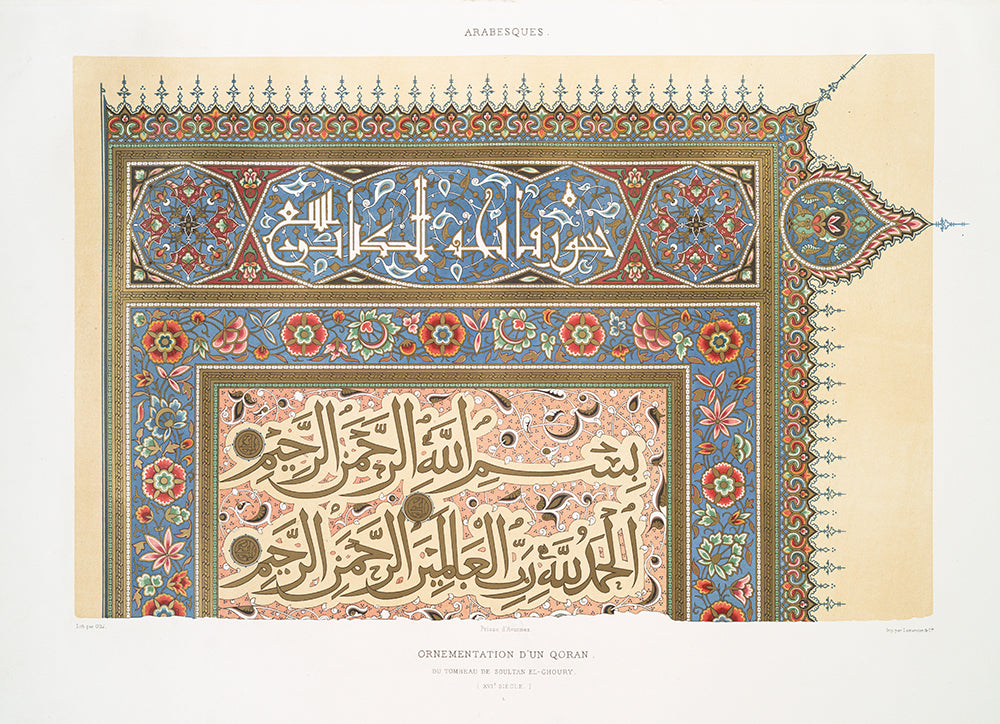 ARABESQUES.
سورة فاتحة الكتاب
بسم الله الرحمن الرحيم
الحمد لله رب العالمين الرحمن الرحيم
Lith. par
Prisse d'Avennes.
Imp. par Lemercier & Cie
ORNEMENTATION D'UN QORAN.
DU TOMBEAU DE SOULTAN EL-GHOURY.
( XVIe SIÈCLE. )